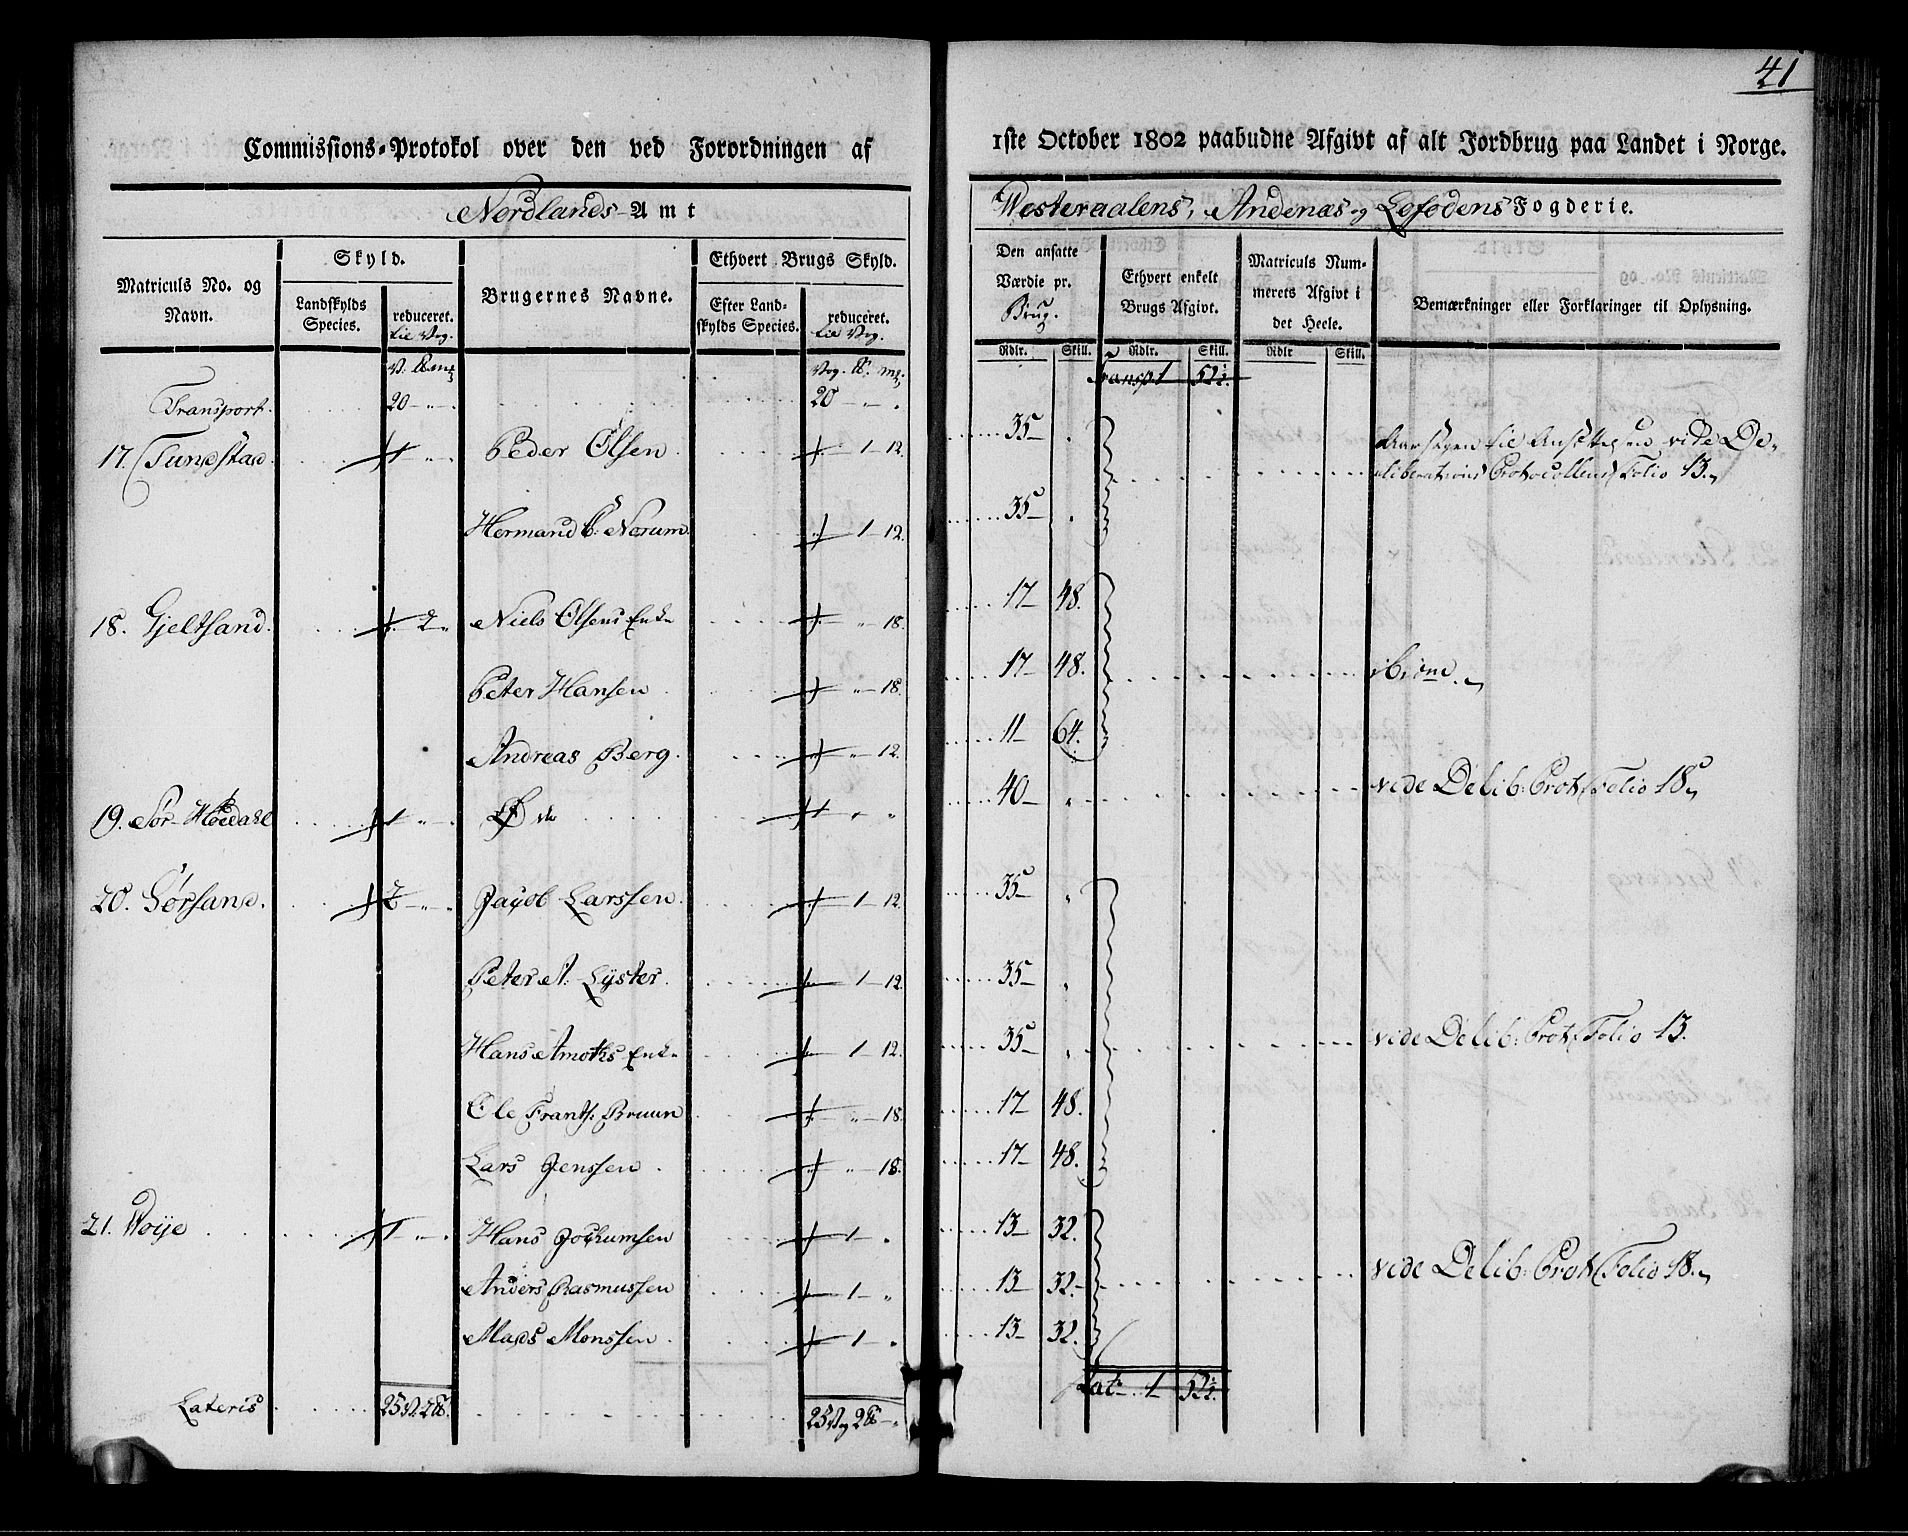 41
Commissions-Protokol over den ved Forordningen af 1ste October 1802 paabudne Afgivt af alt Jordbrug paa Landet i Norge.
Nordlands Amt Westeraalens, Andenæs og Lofodens Fogderie.
Matriculs No. og Navn.
Skyld.
Landskylds Species.
reduceret. til Vog.
Brugernes Navne.
Ethvert Brugs Skyld.
Efter Landskylds Species.
reduceret. til Vog.
Den ansatte Værdie pr. Brug.
Ethvert enkelt Brugs Afgivt.
Matriculs Nummerets Afgivt i det Heele.
Bemærkninger eller Forklaringer til Oplysning.
Rdlr. Skill. Rdlr. Skill. Rdlr Skill.
Transp. 1 52½
Transport 20 - - 20 - -
17. Tundstad 1 - Peder Olsen 1 - 12. 35 -
Aarsagen til Ansættelsen vide De-
liberations Protocollens Folio 13.
Hermand Norum 1 - 12. 35 -
18. Gjeltsand 2 Niels Olsens Enke 18. 17 - 48.
Peter Hansen 18. 17 - 48. ibidem
Andreas Berg 12. 11 - 64.
19. Sør-Høedahl 1 Øde 1 40 - vide Delib: Prot. Folio 18
20. Sørsand. 2 Jacob Larssen 1 - 12. 35 -
Peter A. Lyster 1 - 12. 35 -
Hans Amoths Enke 1 - 12. 35 - vide Delib: Prot. Folio 13.
Ole Frants. Bruun 18. 17 - 48.
Lars Jenssen 18. 17 - 48.
21. Woije 1 Hans Jochumsen 1 - 13 - 32.
Anders Rasmussen 1 - 13 - 32. vide Delib: Prot. Folio 18.
Mads Monssen 1 - 13 - 32.
Lateris 25 V. 2 25 Vog 2 Lat. 1 52½